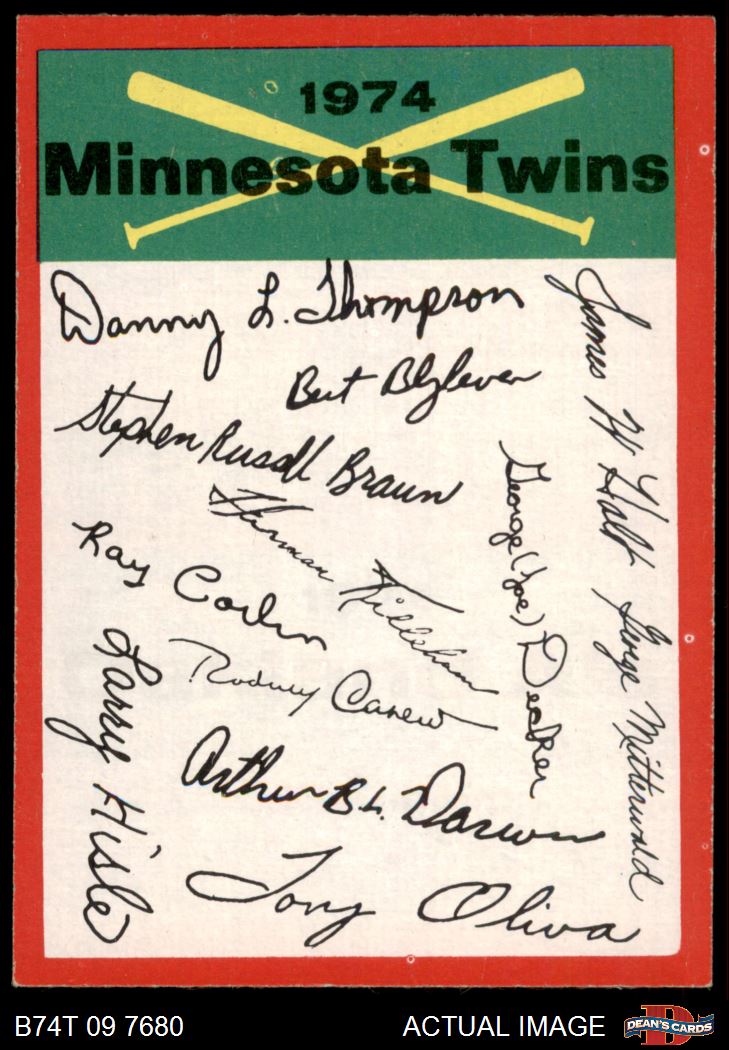 1974
Minnesota Twins
Danny L. Thompson
James H Holt
Bert Blyleven
Stephen Russell Braun
George (Joe) Decker
Harmon Killebrew
Ray Corbin
George Mitterwald
Larry Hisle
Rodney Carew
Arthur B L. Darwin
Tony Oliva
B74T 09 7680
ACTUAL IMAGE
D
DEAN'S CARDS